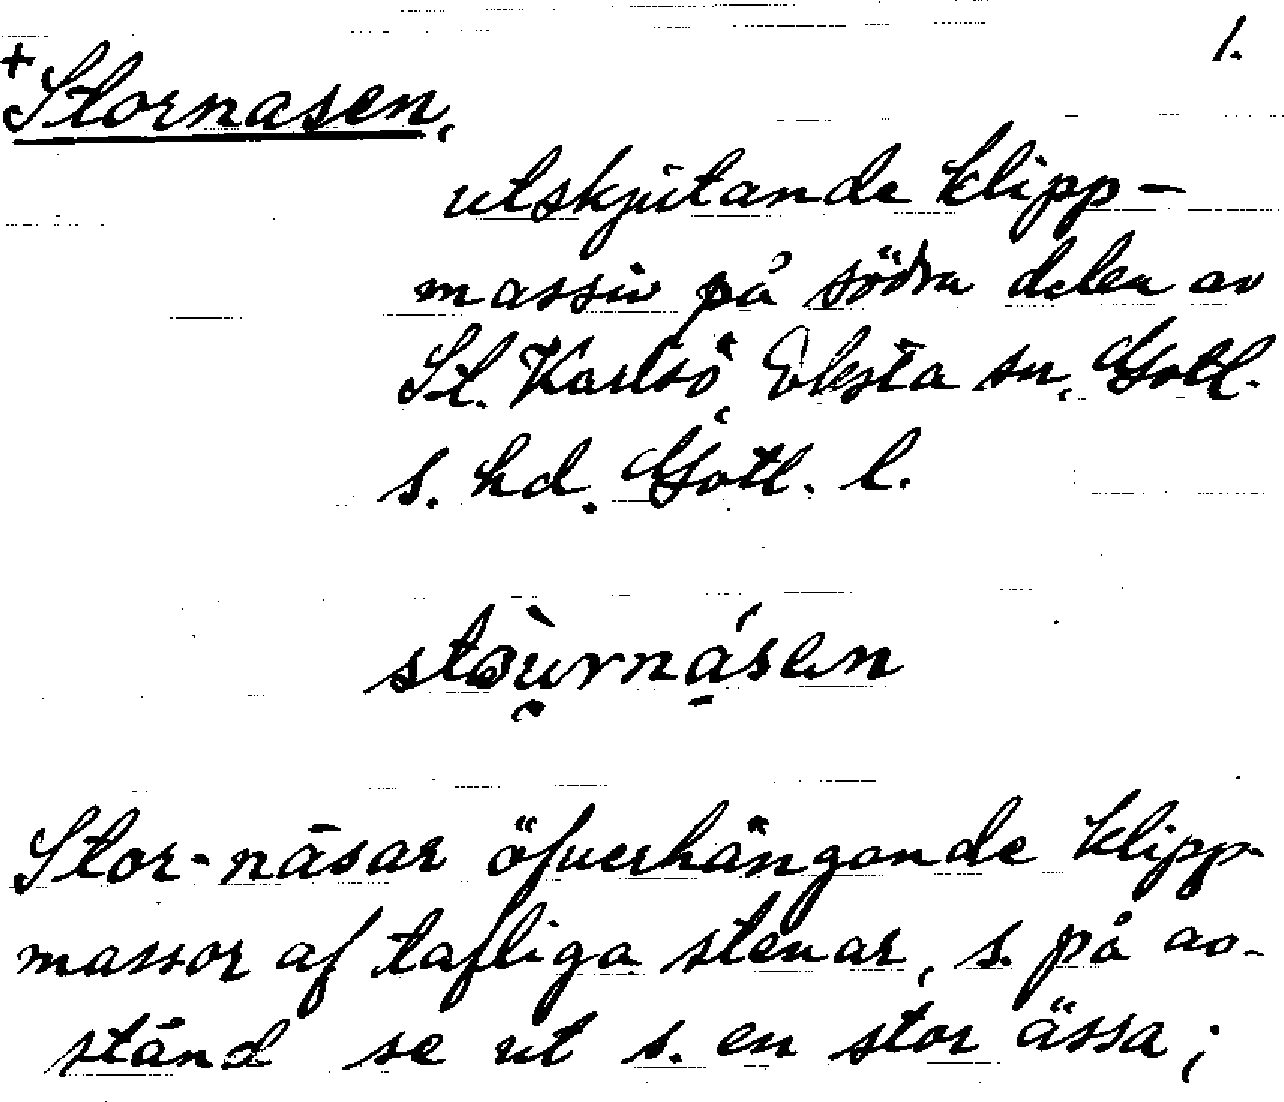 1.
+
Stornasen,
utskjutande klipp-
massiv på södra delen av
St. Karlsö, Eksta sn, Gotl.
s. hd. Gotl. l.
stoùrnásen
Stor-nāsar öfverhängande klipp-
massor af tafliga stenar, s. på av-
stånd se ut s. en stor ässa;